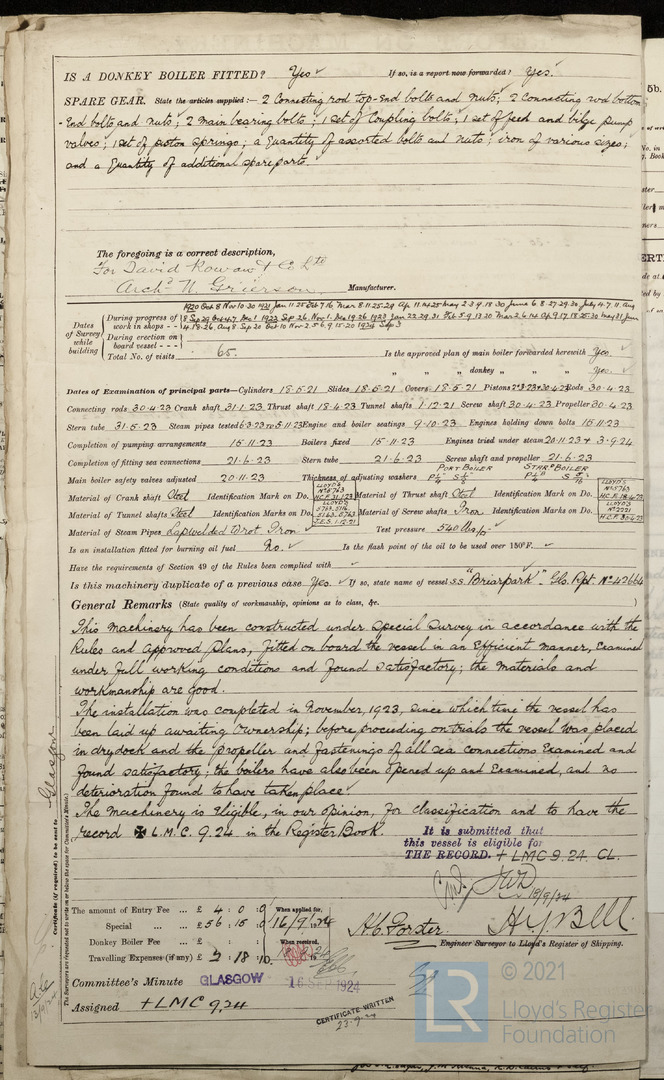 IS A DONKEY BOILER FITTED? Yes ✓ If so, is a report now forwarded? Yes.
SPARE GEAR. State the articles supplied:— 2 Connecting rod top-end bolts and nuts; 2 Connecting rod bottom
-End bolts and nuts; 2 main bearing bolts; 1 set of Coupling bolts; 1 set of feed and bilge pump
valves; 1 set of piston springs; a Quantity of assorted bolts and nuts; iron of various sizes;
and a Quantity of additional spareparts.
The foregoing is a correct description,
For David Rowan & Co Ltd
Archd H. Grierson Manufacturer.
Dates of Survey while building
During progress of work in shops - -
1920 Oct 8 Nov 10 30 1921 Jan 11 25
During erection on board vessel - - -
Total No. of visits 65.
Is the approved plan of main boiler forwarded herewith Yes ✓
" " " donkey " " " Yes ✓
Dates of Examination of principal parts—Cylinders 18.5.21 Slides 18.5.21 Covers 18.5.21 Pistons Rods 30.4.23
Connecting rods 30.4.23 Crank shaft 31.1.23 Thrust shaft 18.4.23 Tunnel shafts 1.12.21 Screw shaft 30.4.23 Propeller 30.4.23
Stern tube 31.5.23 Steam pipes tested Engine and boiler seatings 9.10.23 Engines holding down bolts 15.11.23
Completion of pumping arrangements 15.11.23 Boilers fixed 15.11.23 Engines tried under steam 20.11.23 + 3.9.24
Completion of fitting sea connections 21.6.23 Stern tube 21.6.23 Screw shaft and propeller 21.6.23
Main boiler safety valves adjusted 20.11.23 Thickness of adjusting washers PORT BOILER STARBD BOILER
Material of Crank shaft Steel Identification Mark on Do. LLOYD'S No 5763 H.C.F. 31.1.23 Material of Thrust shaft Steel Identification Mark on Do. LLOYD'S No 5763 H.C.F. 18.4.23
Material of Tunnel shafts Steel Identification Marks on Do. LLOYD'S J.E.S. 1.12.21 Material of Screw shafts Iron Identification Marks on Do. LLOYD'S H.C.F. 30.4.23
Material of Steam Pipes Lapwelded Wrot. Iron Test pressure 540 lbs/□"
Is an installation fitted for burning oil fuel No. ✓ Is the flash point of the oil to be used over 150°F. ✓
Have the requirements of Section 49 of the Rules been complied with ✓
Is this machinery duplicate of a previous case Yes. ✓ If so, state name of vessel S.S. "Briarpark" Gls. Rpt. No 42664
General Remarks (State quality of workmanship, opinions as to class, &c.
This machinery has been constructed under Special Survey in accordance with the
Rules and approved Plans, fitted on board the vessel in an Efficient manner, Examined
under full working conditions and found satisfactory; the materials and
workmanship are good.
The installation was completed in November, 1923, since which time the vessel has
been laid up awaiting ownership; before proceeding on trials the vessel was placed
in drydock and the propeller and fastenings of all sea connections Examined and
found satisfactory; the boilers have also been opened up and Examined, and no
deterioration found to have taken place.
The machinery is Eligible, in our opinion, for classification and to have the
record ✠ L.M.C. 9.24 in the Register Book.
It is submitted that
this vessel is eligible for
THE RECORD. + LMC 9.24. CL.
18/9/24
The amount of Entry Fee ... £ 4 : 0 : 0
Special ... ... £ 56 : 15 : 0
Donkey Boiler Fee ... £ : :
Travelling Expenses (if any) £ : 18 : 10
When applied for, 16/9/1924
When received,
H.C. Forster.
Engineer Surveyor to Lloyd's Register of Shipping.
Committee's Minute GLASGOW 16 SEP 1924
Assigned + LMC 9.24
CERTIFICATE WRITTEN
23.9.24
Glasgow
Certificate (if required) to be sent to
(The Surveyors are requested not to write on or below the space for Committee's Minute.)
© 2021
Lloyd's Register
Foundation
LR